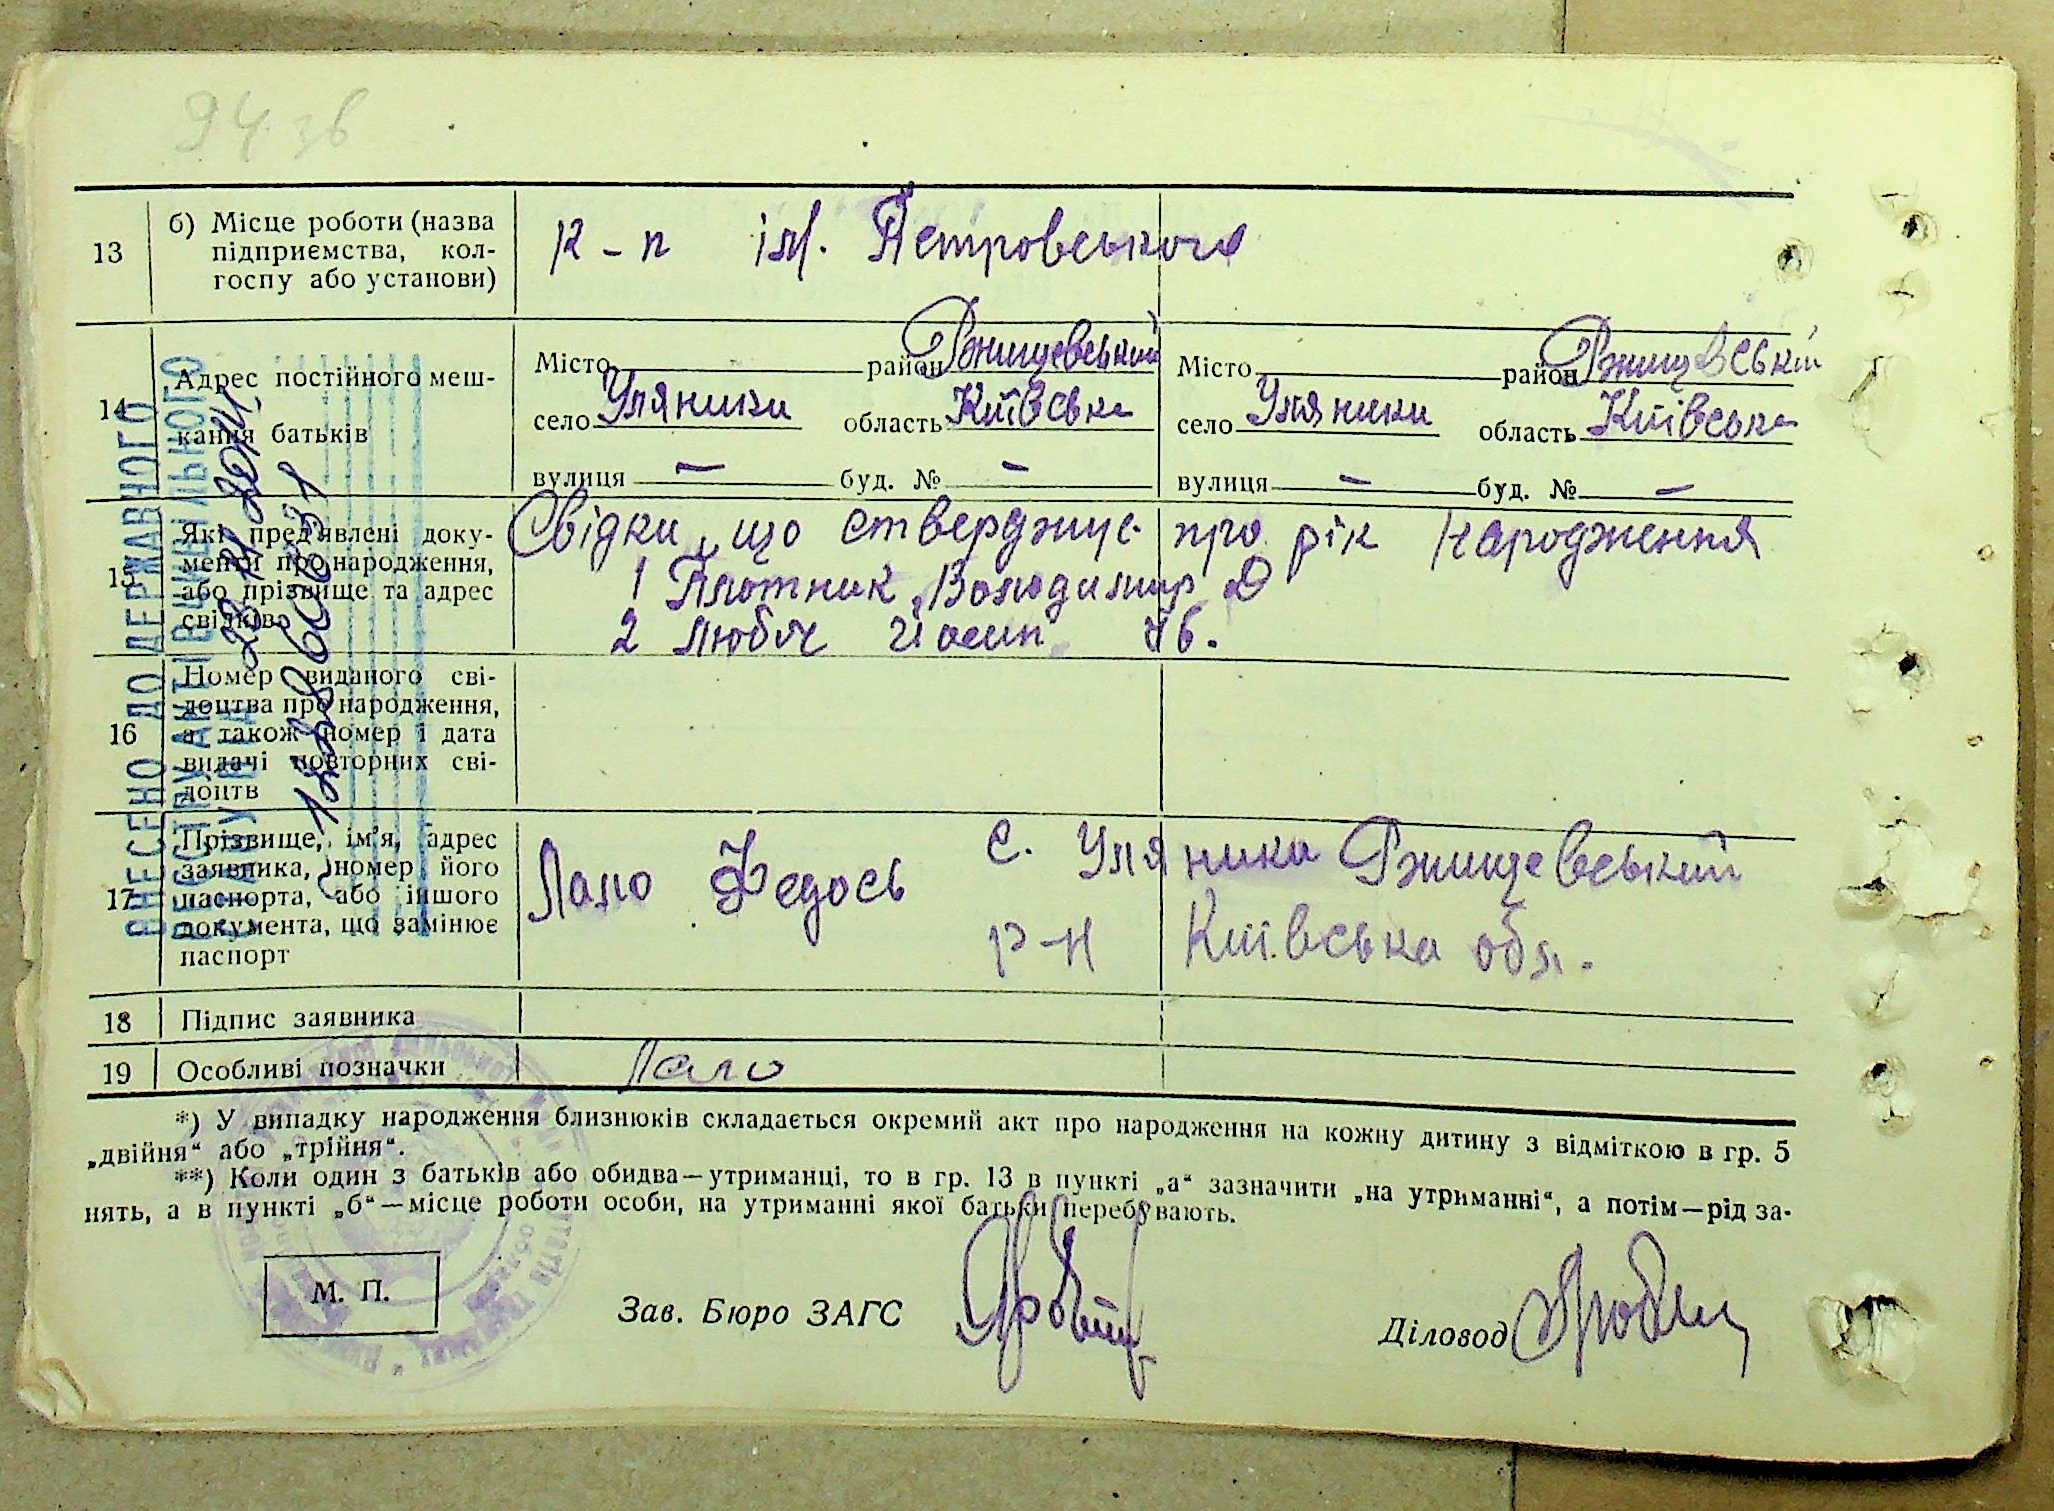 94 зв
13 б) Місце роботи (назва
підприємства, кол-
госпу або установи)
к-п ім. Петровського
14 Адрес постійного меш-
кання батьків
Місто район Ржищевський
село Уляники область Київська
вулиця – буд. № –
Місто район Ржищевській
село Уляники область Київська
вулиця – буд. № –
15 Які пред'явлені доку-
менти про народження,
або прізвище та адрес
свідків
Свідки, що стверджує про рік народження
1 Плотник Володимир Д
2 Любич Йосип Ів.
16 Номер виданого сві-
доцтва про народження,
а також номер і дата
видачі повторних сві-
доцтв
17 Прізвище, ім'я, адрес
заявника, номер його
паспорта, або іншого
документа, що замінює
паспорт
Лало Федось с. Уляники Ржищевський
р-н Київська обл.
18 Підпис заявника
19 Особливі позначки
Лало
*) У випадку народження близнюків складається окремий акт про народження на кожну дитину з відміткою в гр. 5
„двійня“ або „трійня“.
**) Коли один з батьків або обидва—утриманці, то в гр. 13 в пункті „а“ зазначити „на утриманні“, а потім—рід за-
нять, а в пункті „б“—місце роботи особи, на утриманні якої батьки перебувають.
М. П.
Зав. Бюро ЗАГС
Діловод
ВНЕСЕНО ДО ДЕРЖАВНОГО
РЕЄСТРУ АКТІВ ЦИВІЛЬНОГО